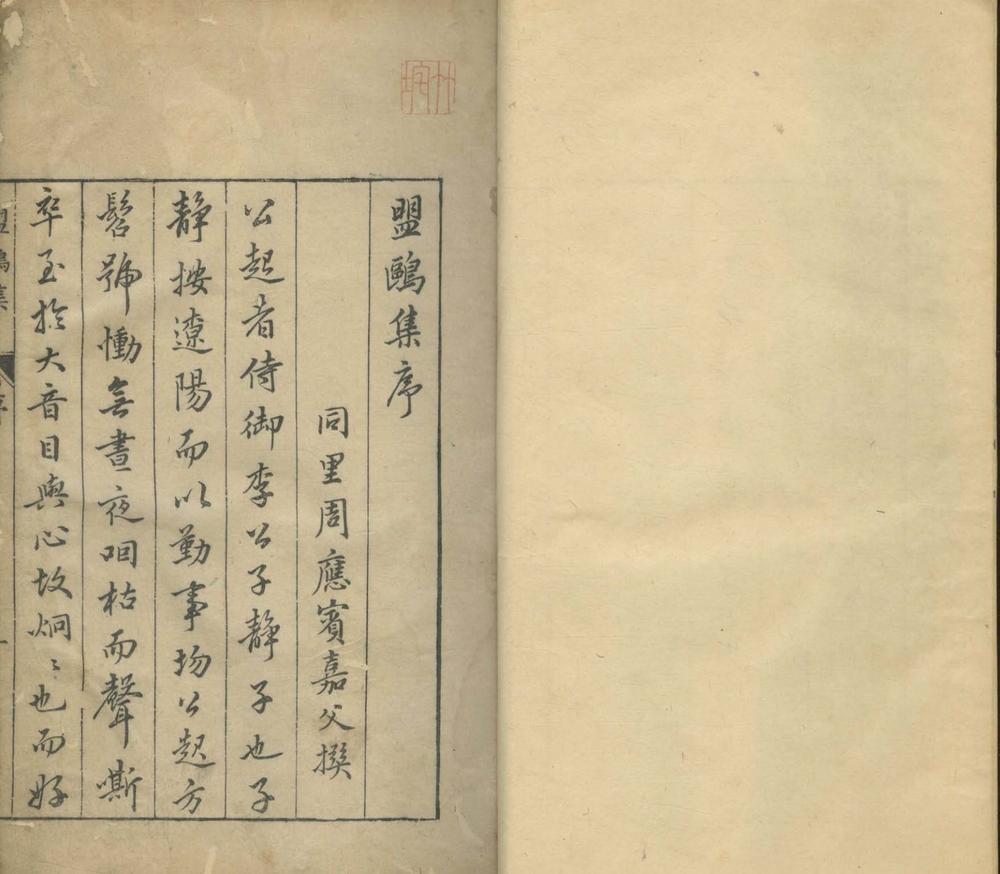 盟鷗集序
同里周應賓嘉父撰
公起者侍御李公子靜子也子
靜按遼陽而以勤事殤公起方
髫號慟無晝夜咽枯而聲嘶
卒至於大音目與心故炯〻也而好
盟鷗集
序
一